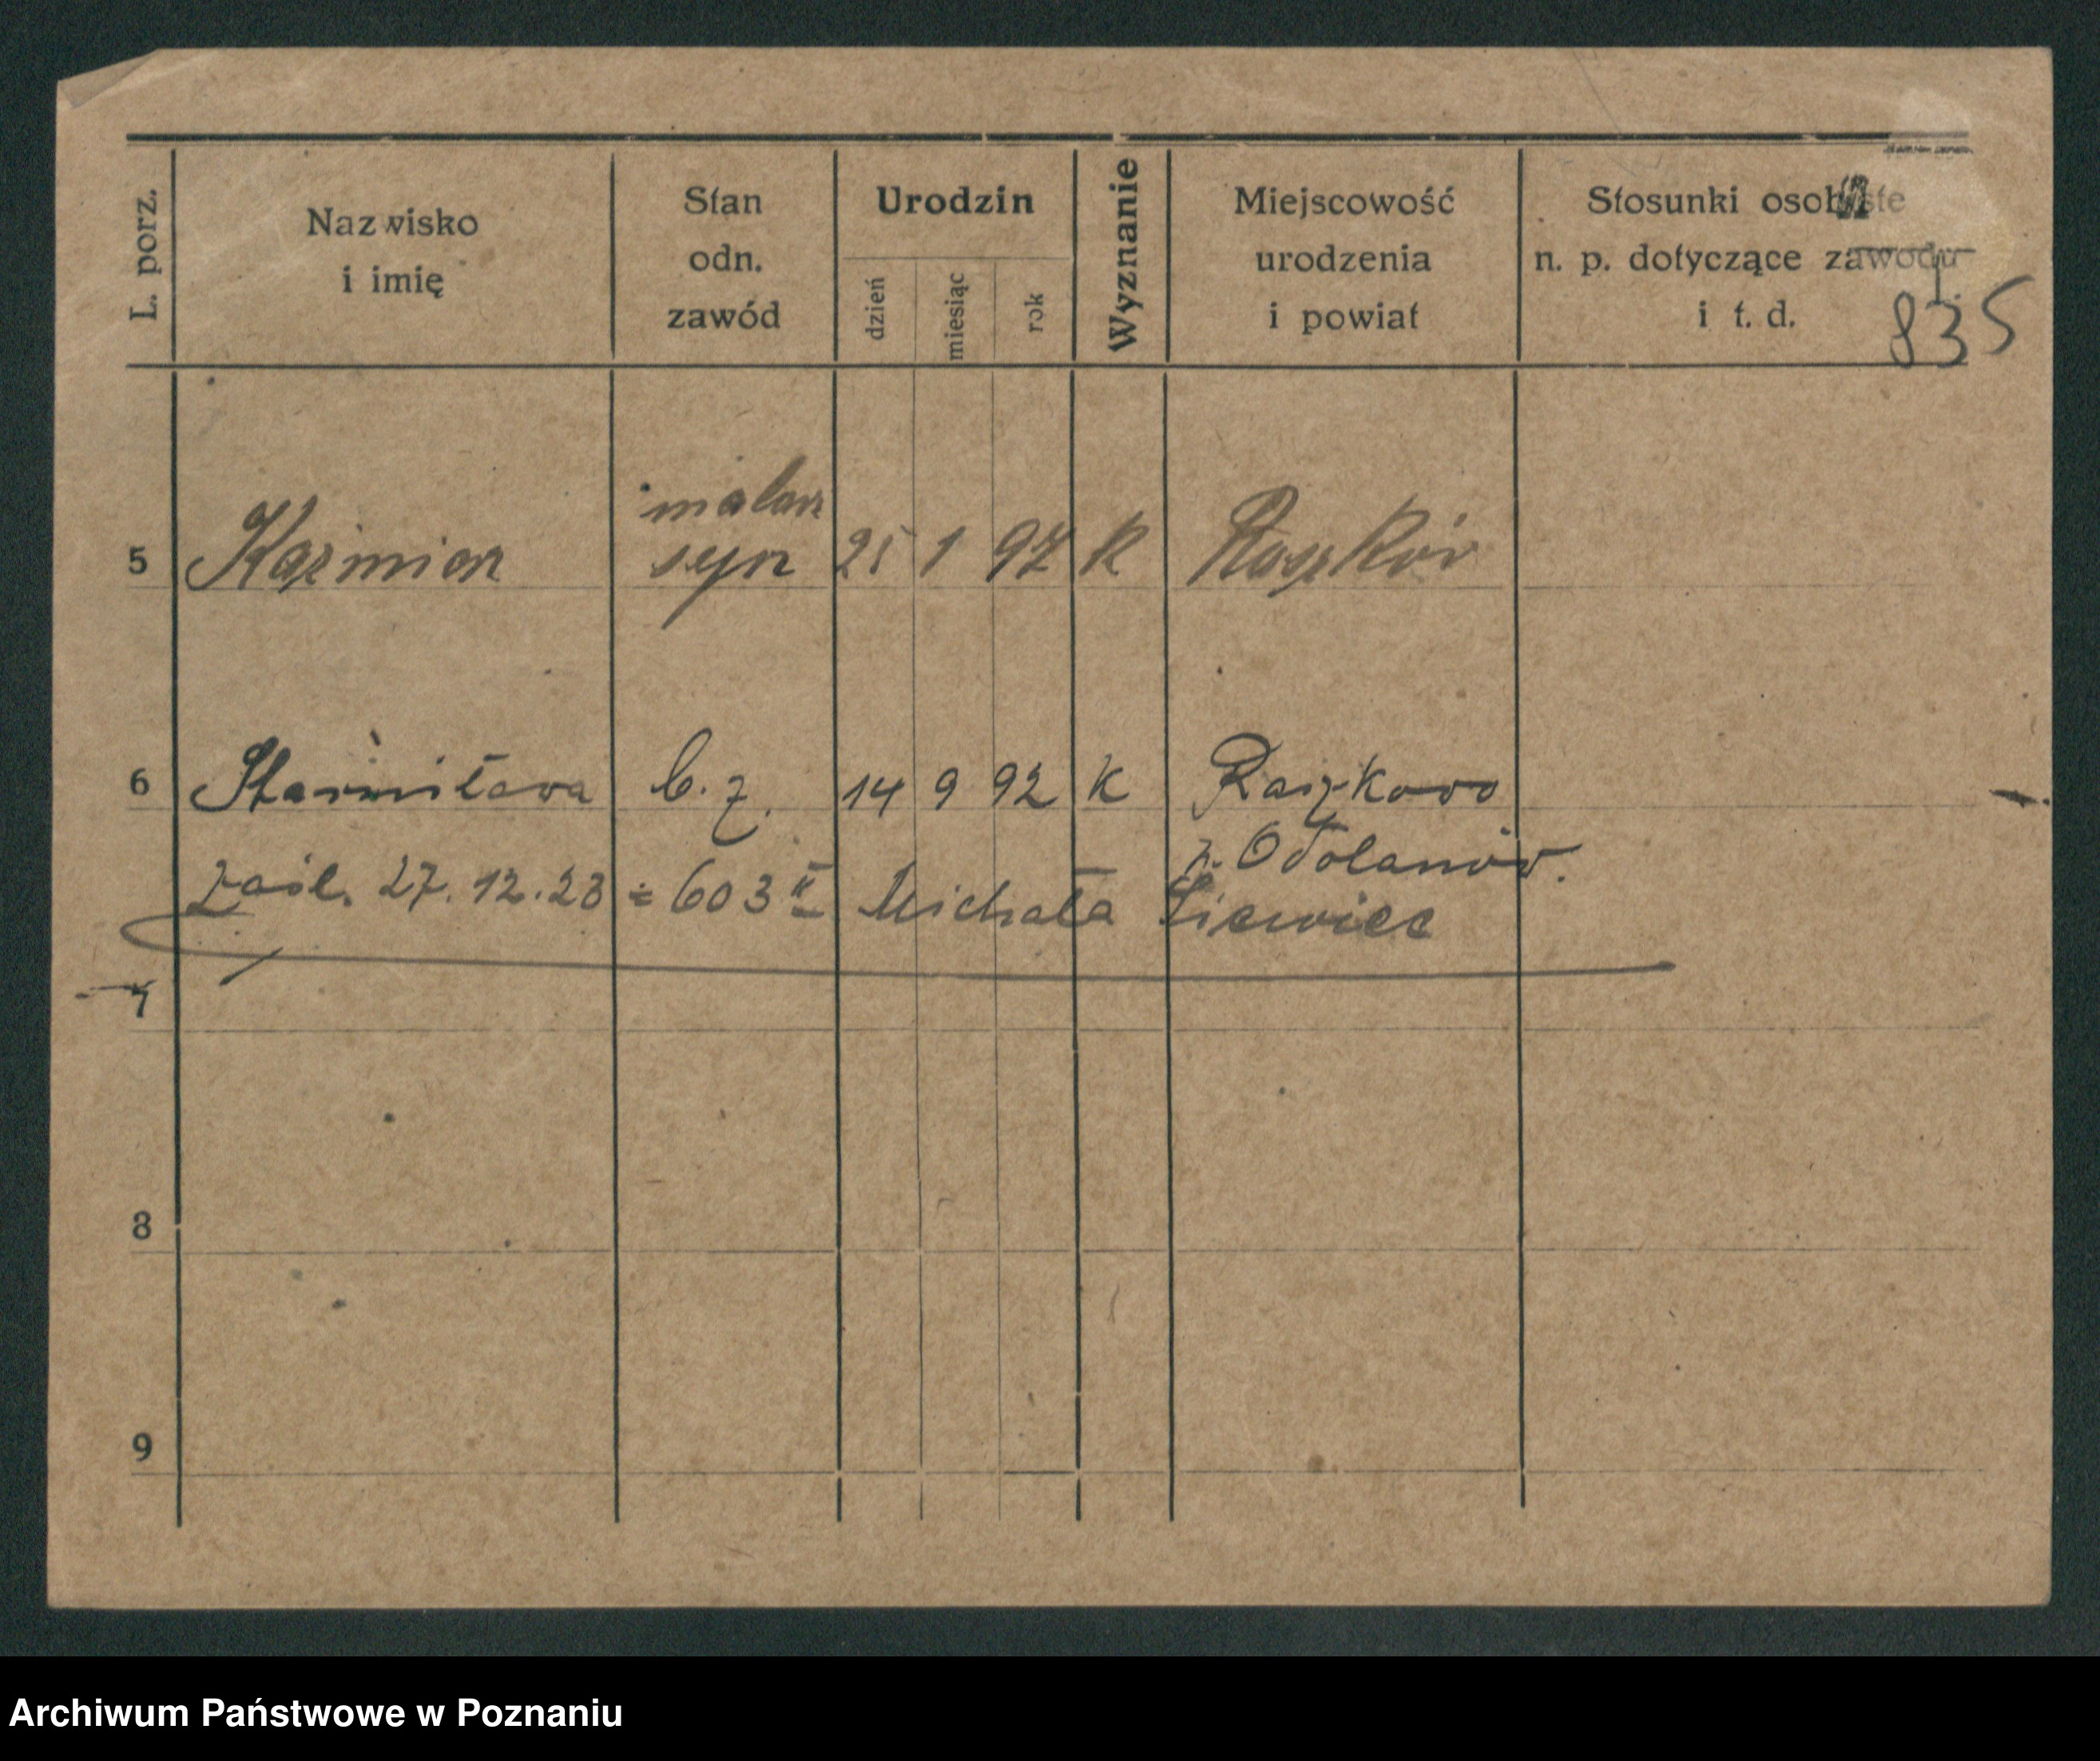 L. porz.
Nazwisko
i imię
Stan
odn.
zawód
Urodzin
dzień
miesiąc
rok
Wyznanie
Miejscowość
urodzenia
i powiat
Stosunki osobiste
n. p. dotyczące zawodu
i t. d.
835
malarz
5 Kazimierz syn 25 1 97 K Raszków
6 Stanisława b. z. 14 9 92 K Raszkowo
p. Odolanów.
zaśl. 27. 12. 23 = 603 II Michała
7
8
9
Archiwum Państwowe w Poznaniu